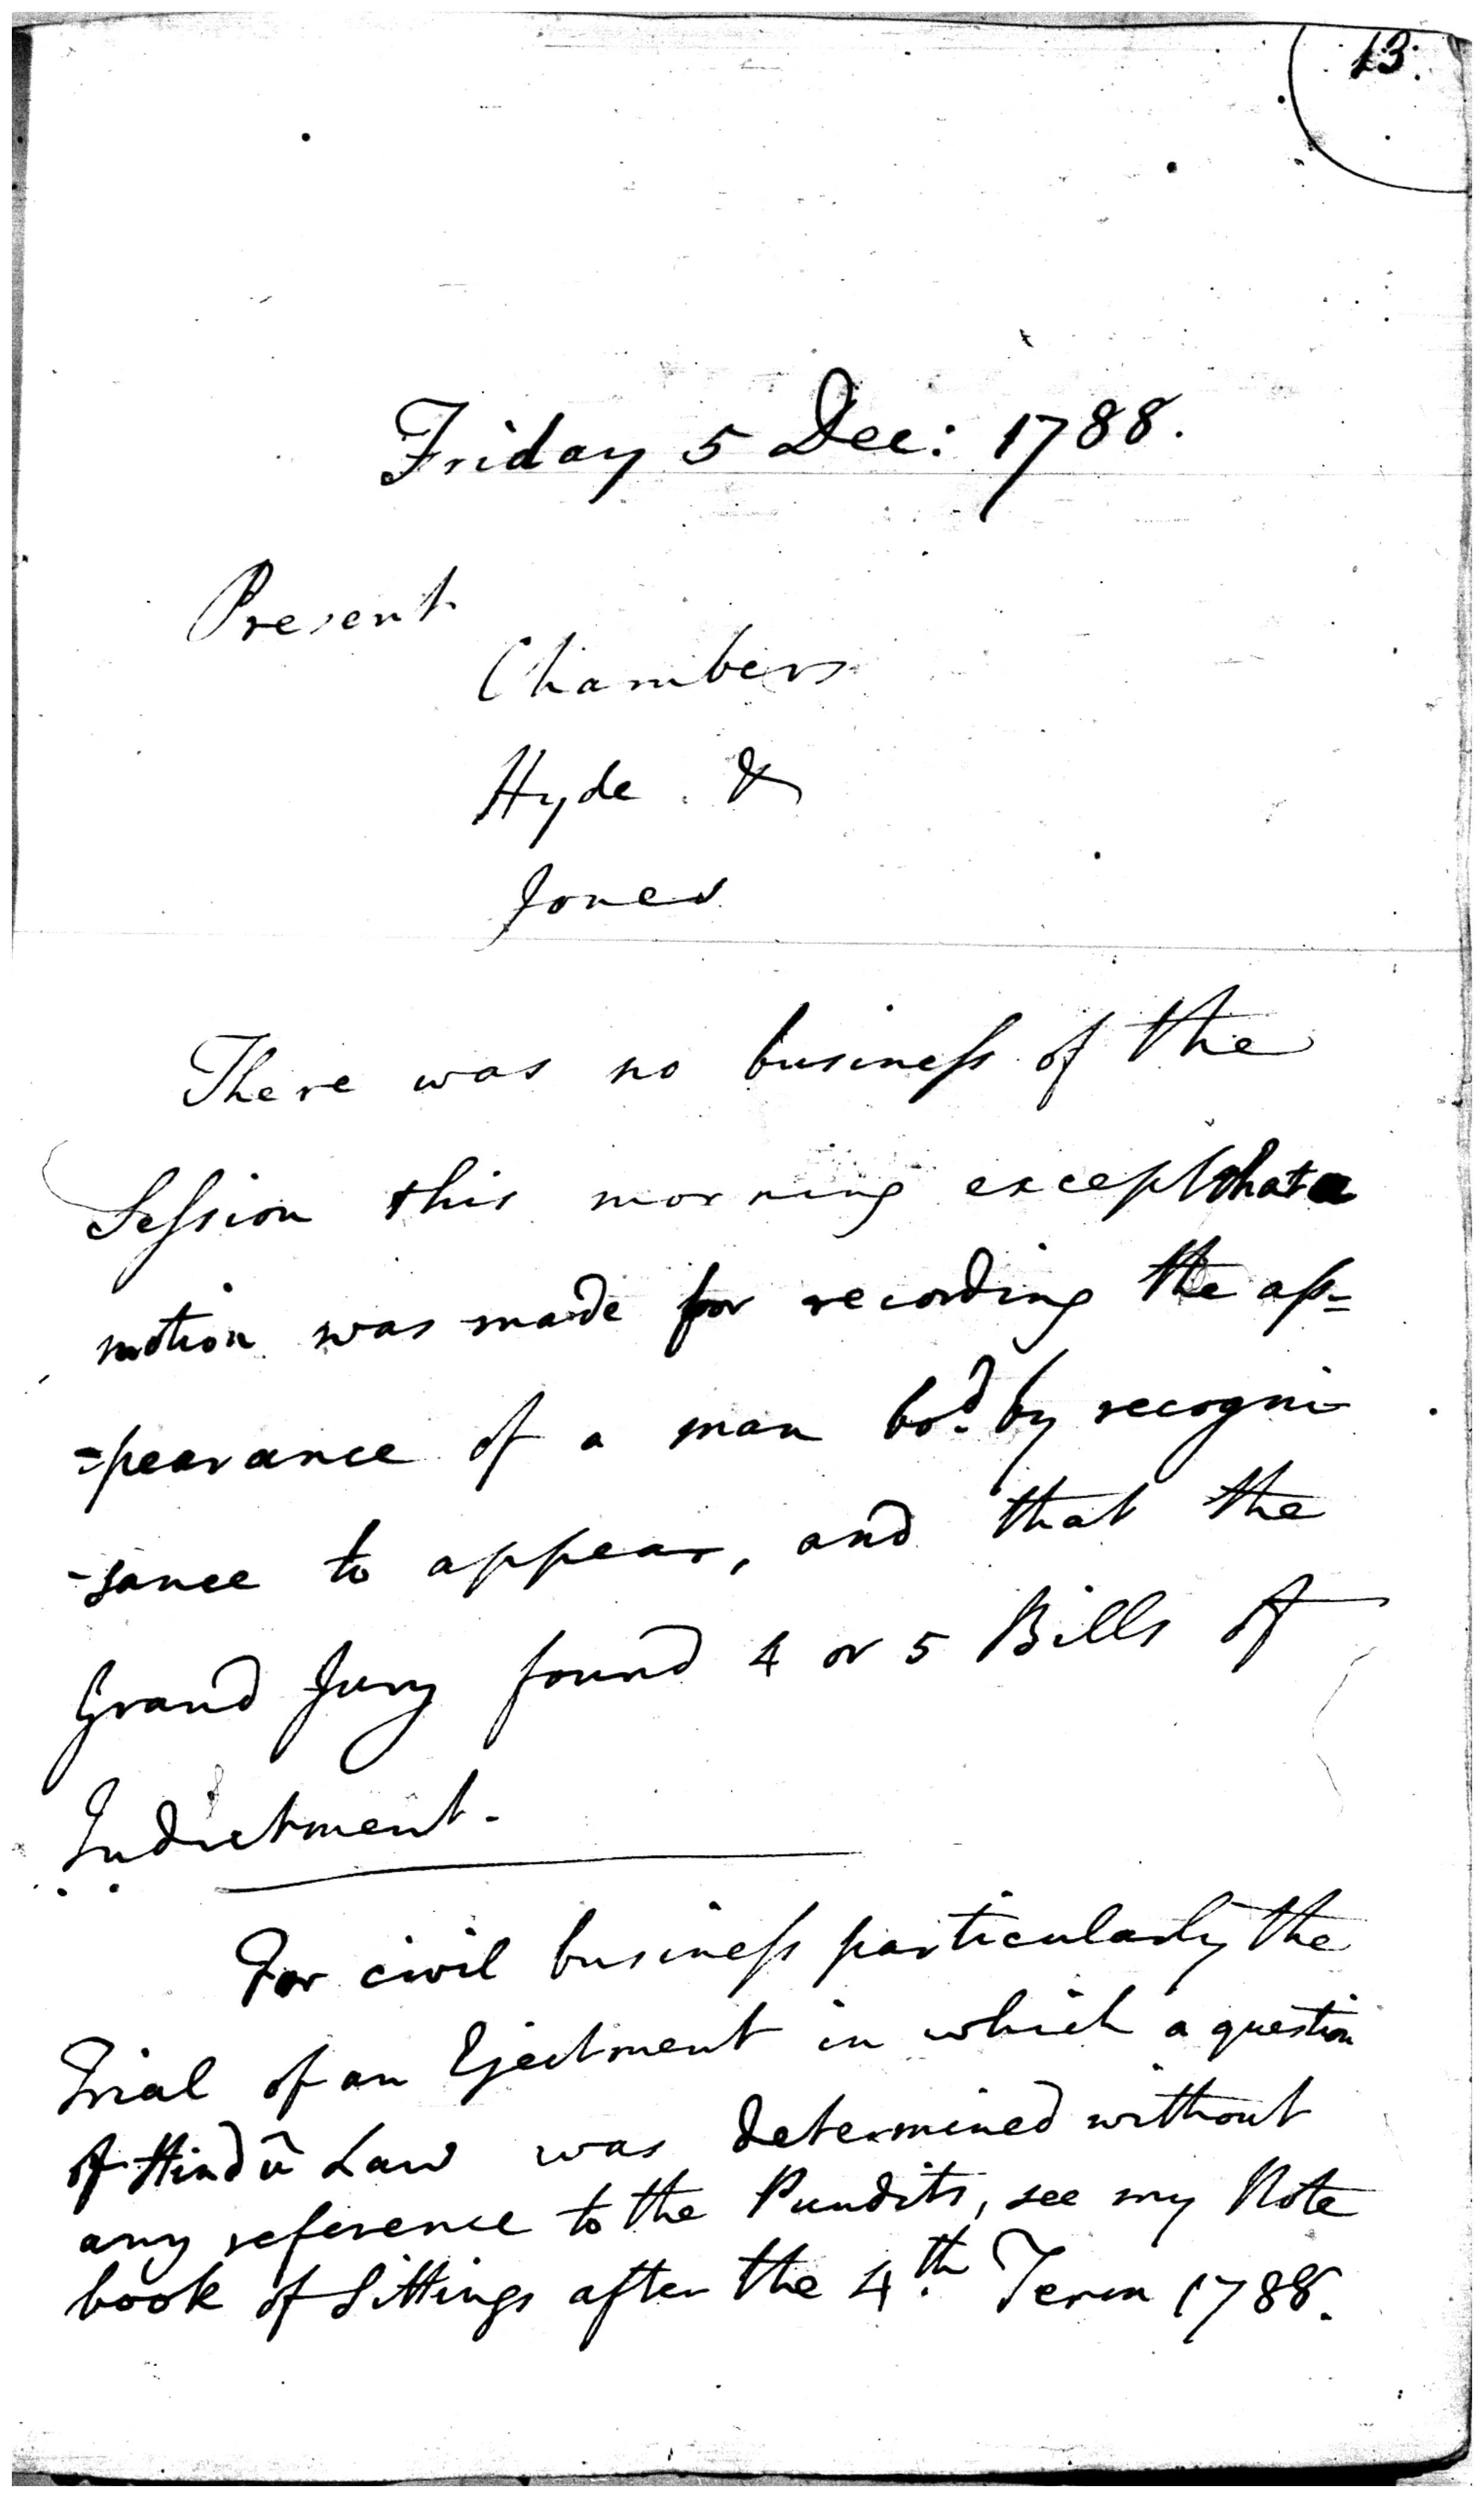 13.
Friday 5 Dec: 1788.
Present
Chambers
Hyde &
Jones
There was no business of the
Session this morning except that a
motion was made for recording the ap=
=pearance of a man bo.d by recogni
-zance to appear, and that the
Grand Jury found 4 or 5 Bills of
Indictment.
For civil business particularly the
Trial of an Ejectment in which a question
of Hindũ Law was determined without
any reference to the Pundits, see my Note
book of Sittings after the 4.th Term 1788.